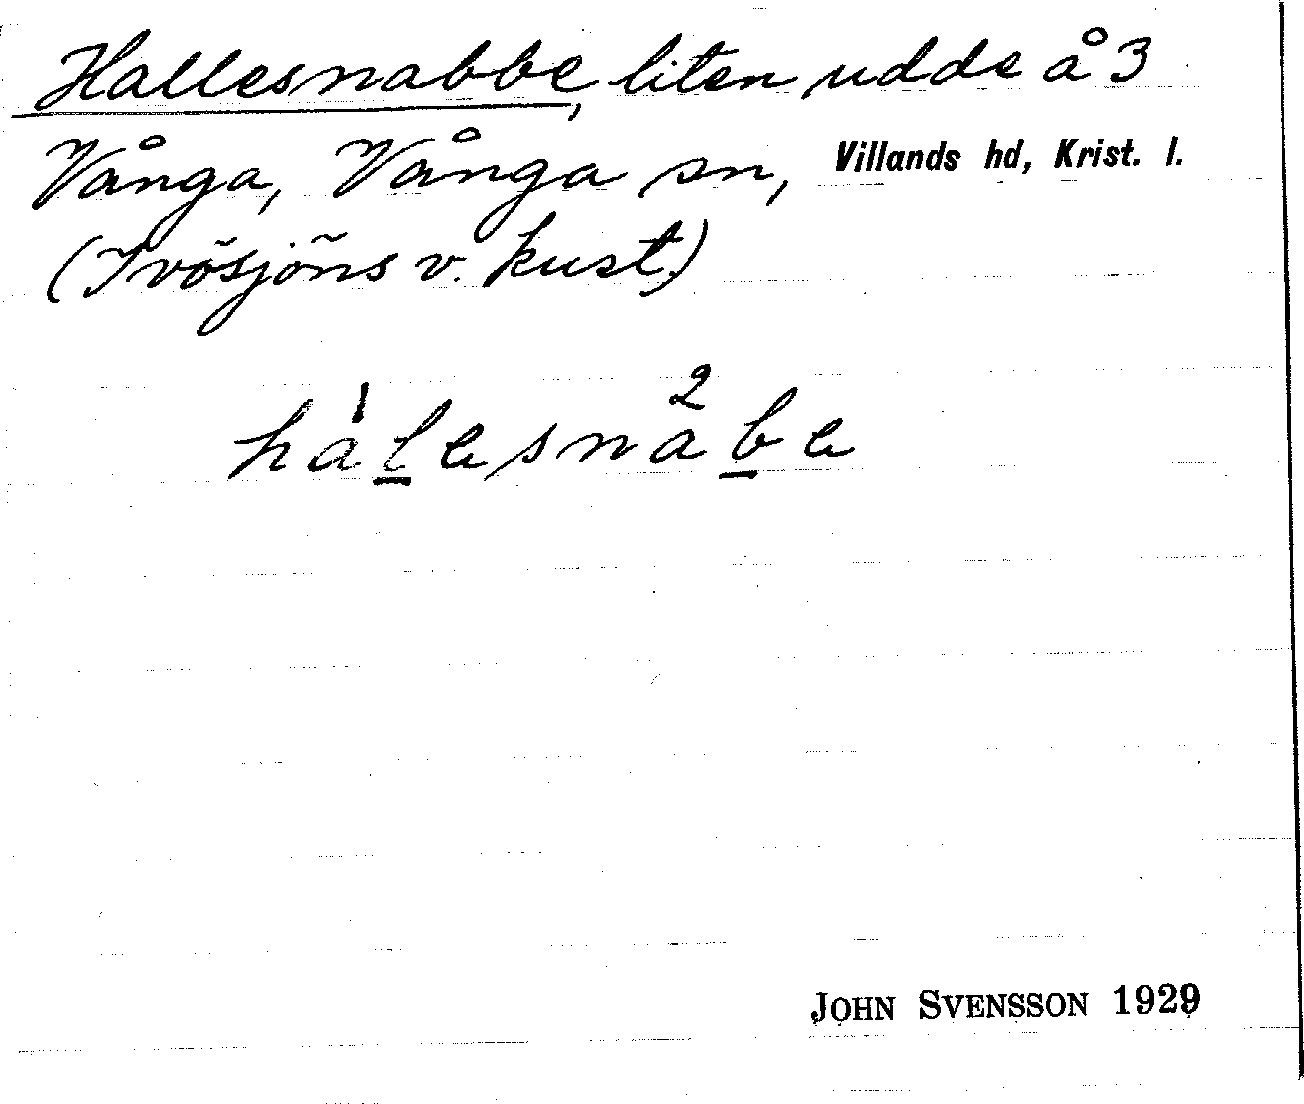 Hallesnabbe, liten udde å 3
Vånga, Vånga sn, Villands hd, Krist. l.
(Ivösjöns v. kust.)
1 2
halesnabe
JOHN SVENSSON 1929